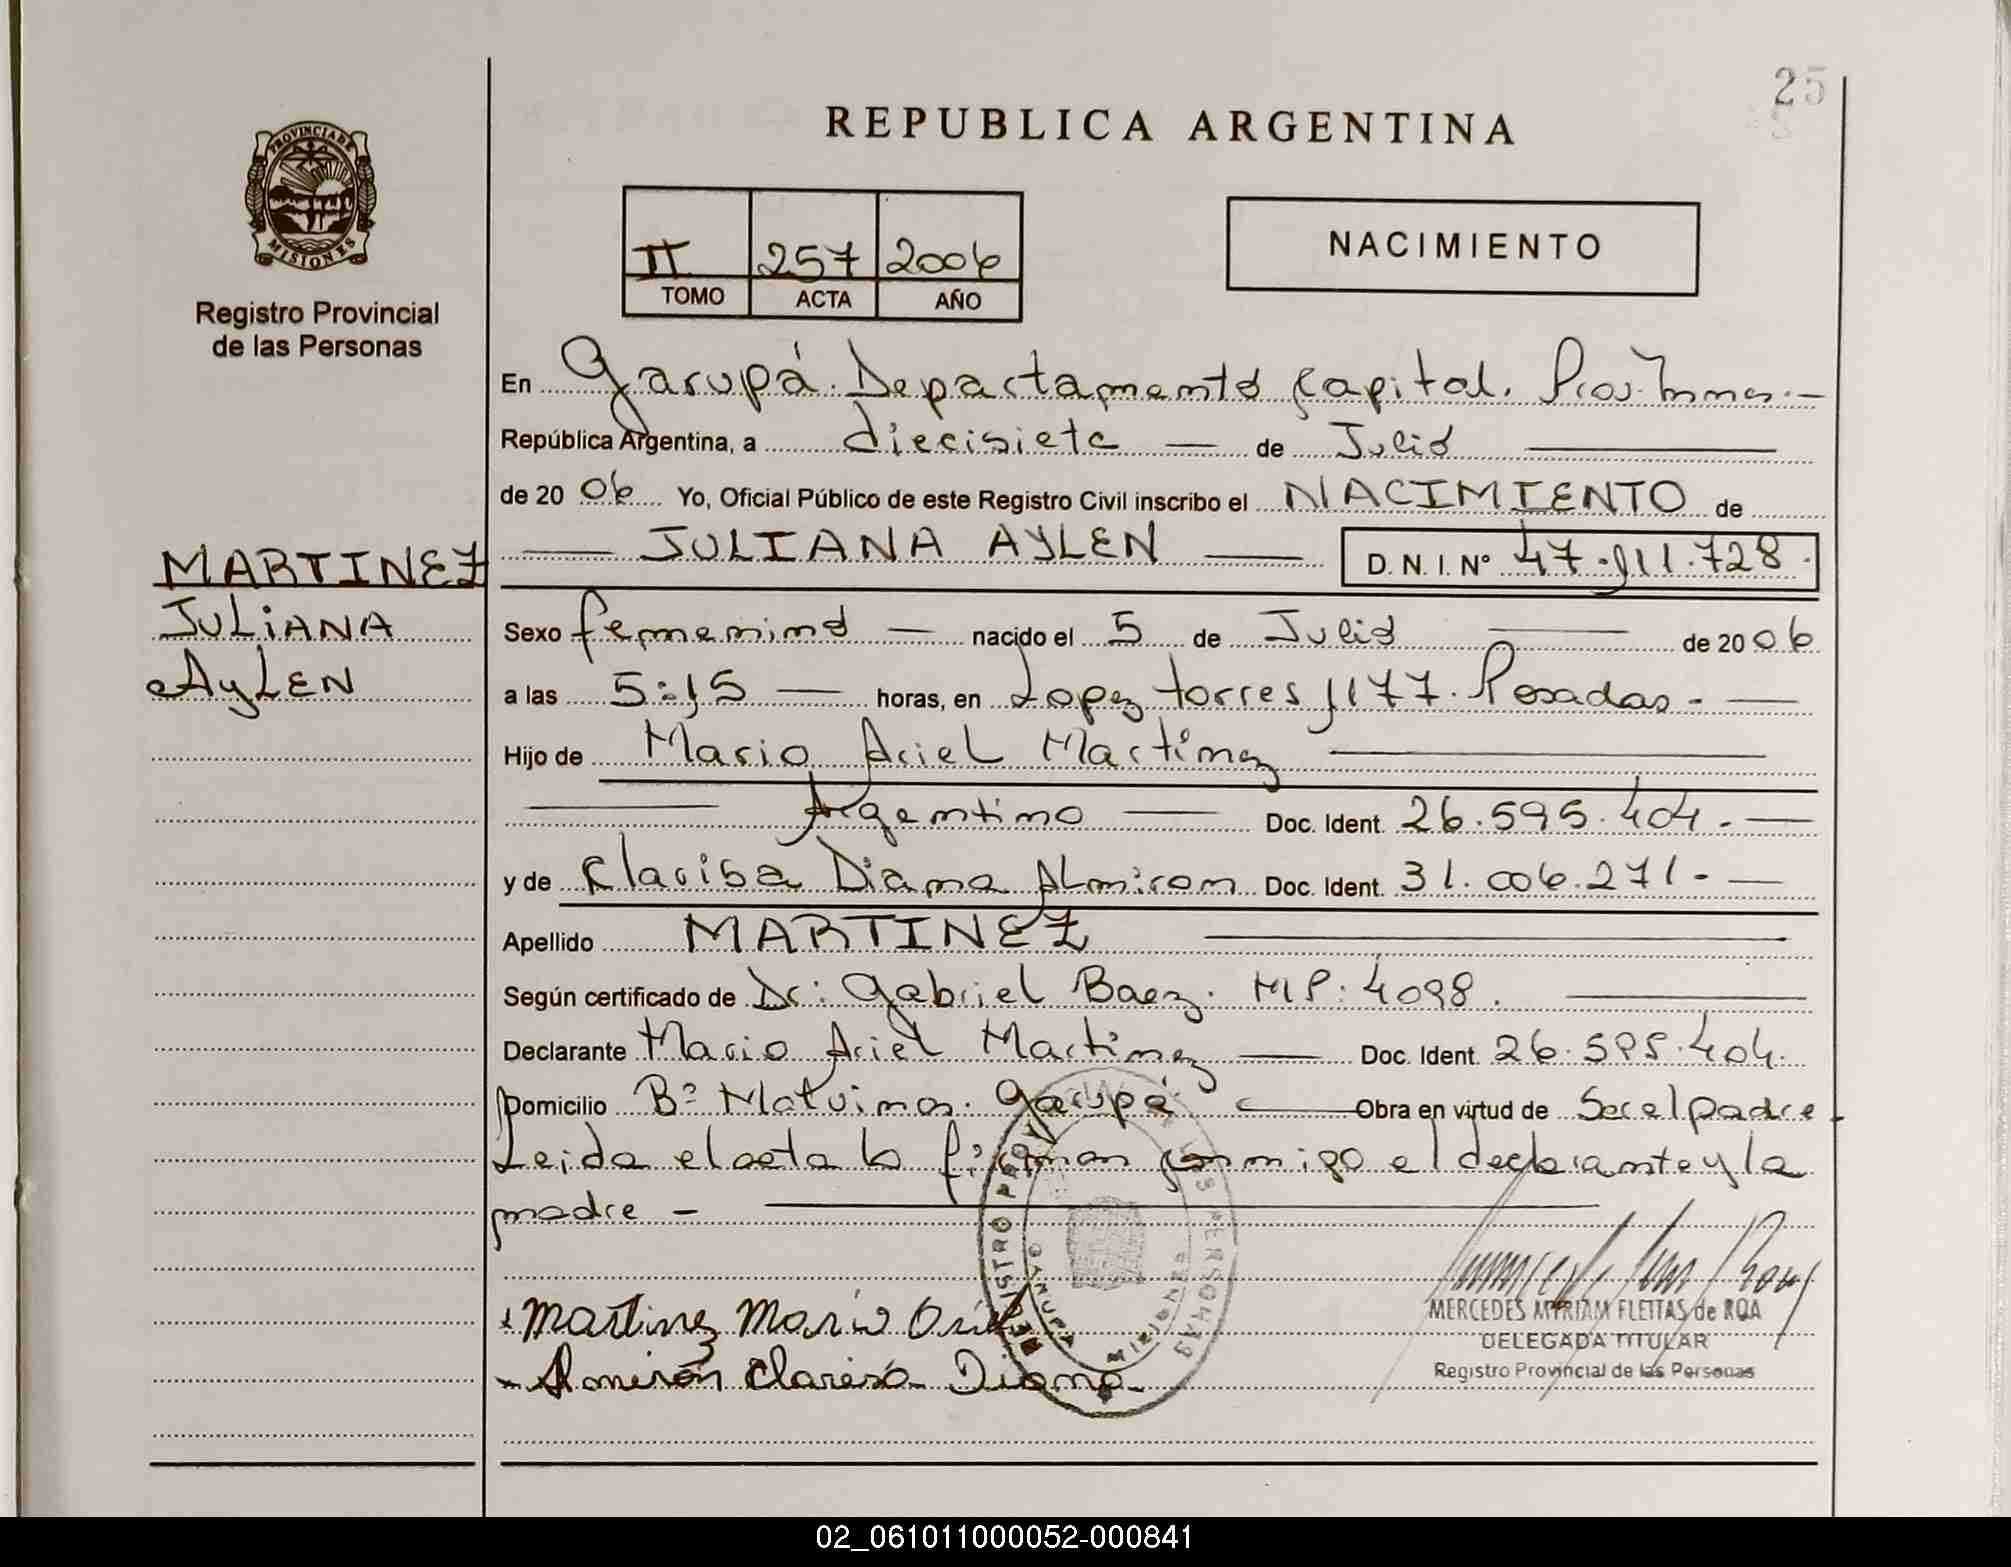 25
REPUBLICA ARGENTINA
PROVINCIA DE
MISIONES
Registro Provincial
de las Personas
II 257 2006
TOMO ACTA AÑO
NACIMIENTO
En Garupá. Departamento Capital. Prov. Mnes.-
República Argentina, a diecisiete — de Julio
de 2006 Yo, Oficial Público de este Registro Civil inscribo el NACIMIENTO de
MARTINEZ
JULIANA
AYLEN
— JULIANA AYLEN — D. N. I. Nº 47.111.728.
Sexo femenino — nacido el 5 de Julio — de 2006
a las 5:15 — horas, en Lopez torres 1177. Posadas. —
Hijo de Mario Ariel Martinez —
— Argentino — Doc. Ident. 26.595.404. —
y de Clarisa Diana Almiron Doc. Ident. 31.006.271. —
Apellido MARTINEZ —
Según certificado de Dr: Gabriel Baez. MP: 4098. —
Declarante Mario Ariel Martinez — Doc. Ident. 26.595.404.
Domicilio Bº Malvinas. Garupá — Obra en virtud de Ser el padre.
Leida el acta la firman conmigo el declarante y la
madre - —
REGISTRO PROVINCIAL DE LAS PERSONAS
GARUPA
MISIONES
Martinez Mario Ariel
- Almirón Clarisa Diana-
MERCEDES MYRIAM FLEITAS de ROA
DELEGADA TITULAR
Registro Provincial de las Personas
02_061011000052-000841